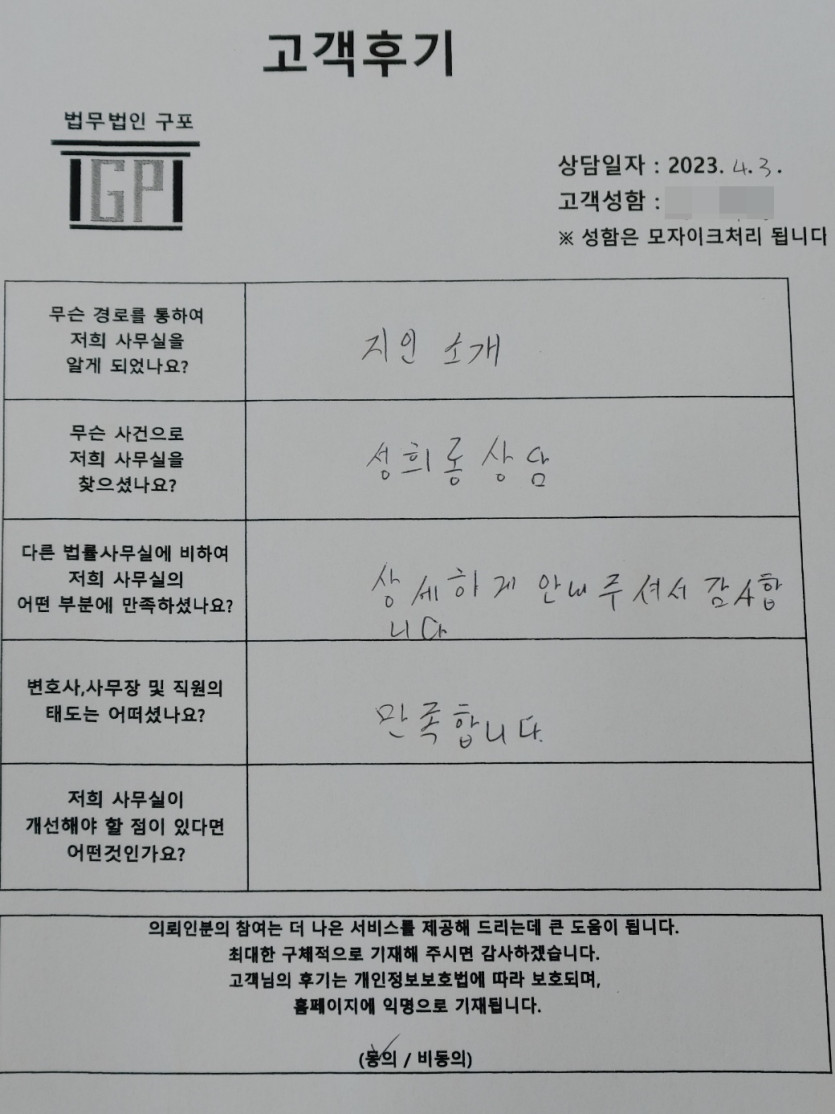 고객후기
법무법인 구포
GP
상담일자 : 2023. 4. 3.
고객성함 :
※ 성함은 모자이크처리 됩니다
무슨 경로를 통하여
저희 사무실을
알게 되었나요?
지인 소개
무슨 사건으로
저희 사무실을
찾으셨나요?
성희롱 상담
다른 법률사무실에 비하여
저희 사무실의
어떤 부분에 만족하셨나요?
상세하게 안내주셔서 감사합
니다
변호사,사무장 및 직원의
태도는 어떠셨나요?
만족합니다.
저희 사무실이
개선해야 할 점이 있다면
어떤것인가요?
의뢰인분의 참여는 더 나은 서비스를 제공해 드리는데 큰 도움이 됩니다.
최대한 구체적으로 기재해 주시면 감사하겠습니다.
고객님의 후기는 개인정보보호법에 따라 보호되며,
홈페이지에 익명으로 기재됩니다.
(동의 / 비동의)